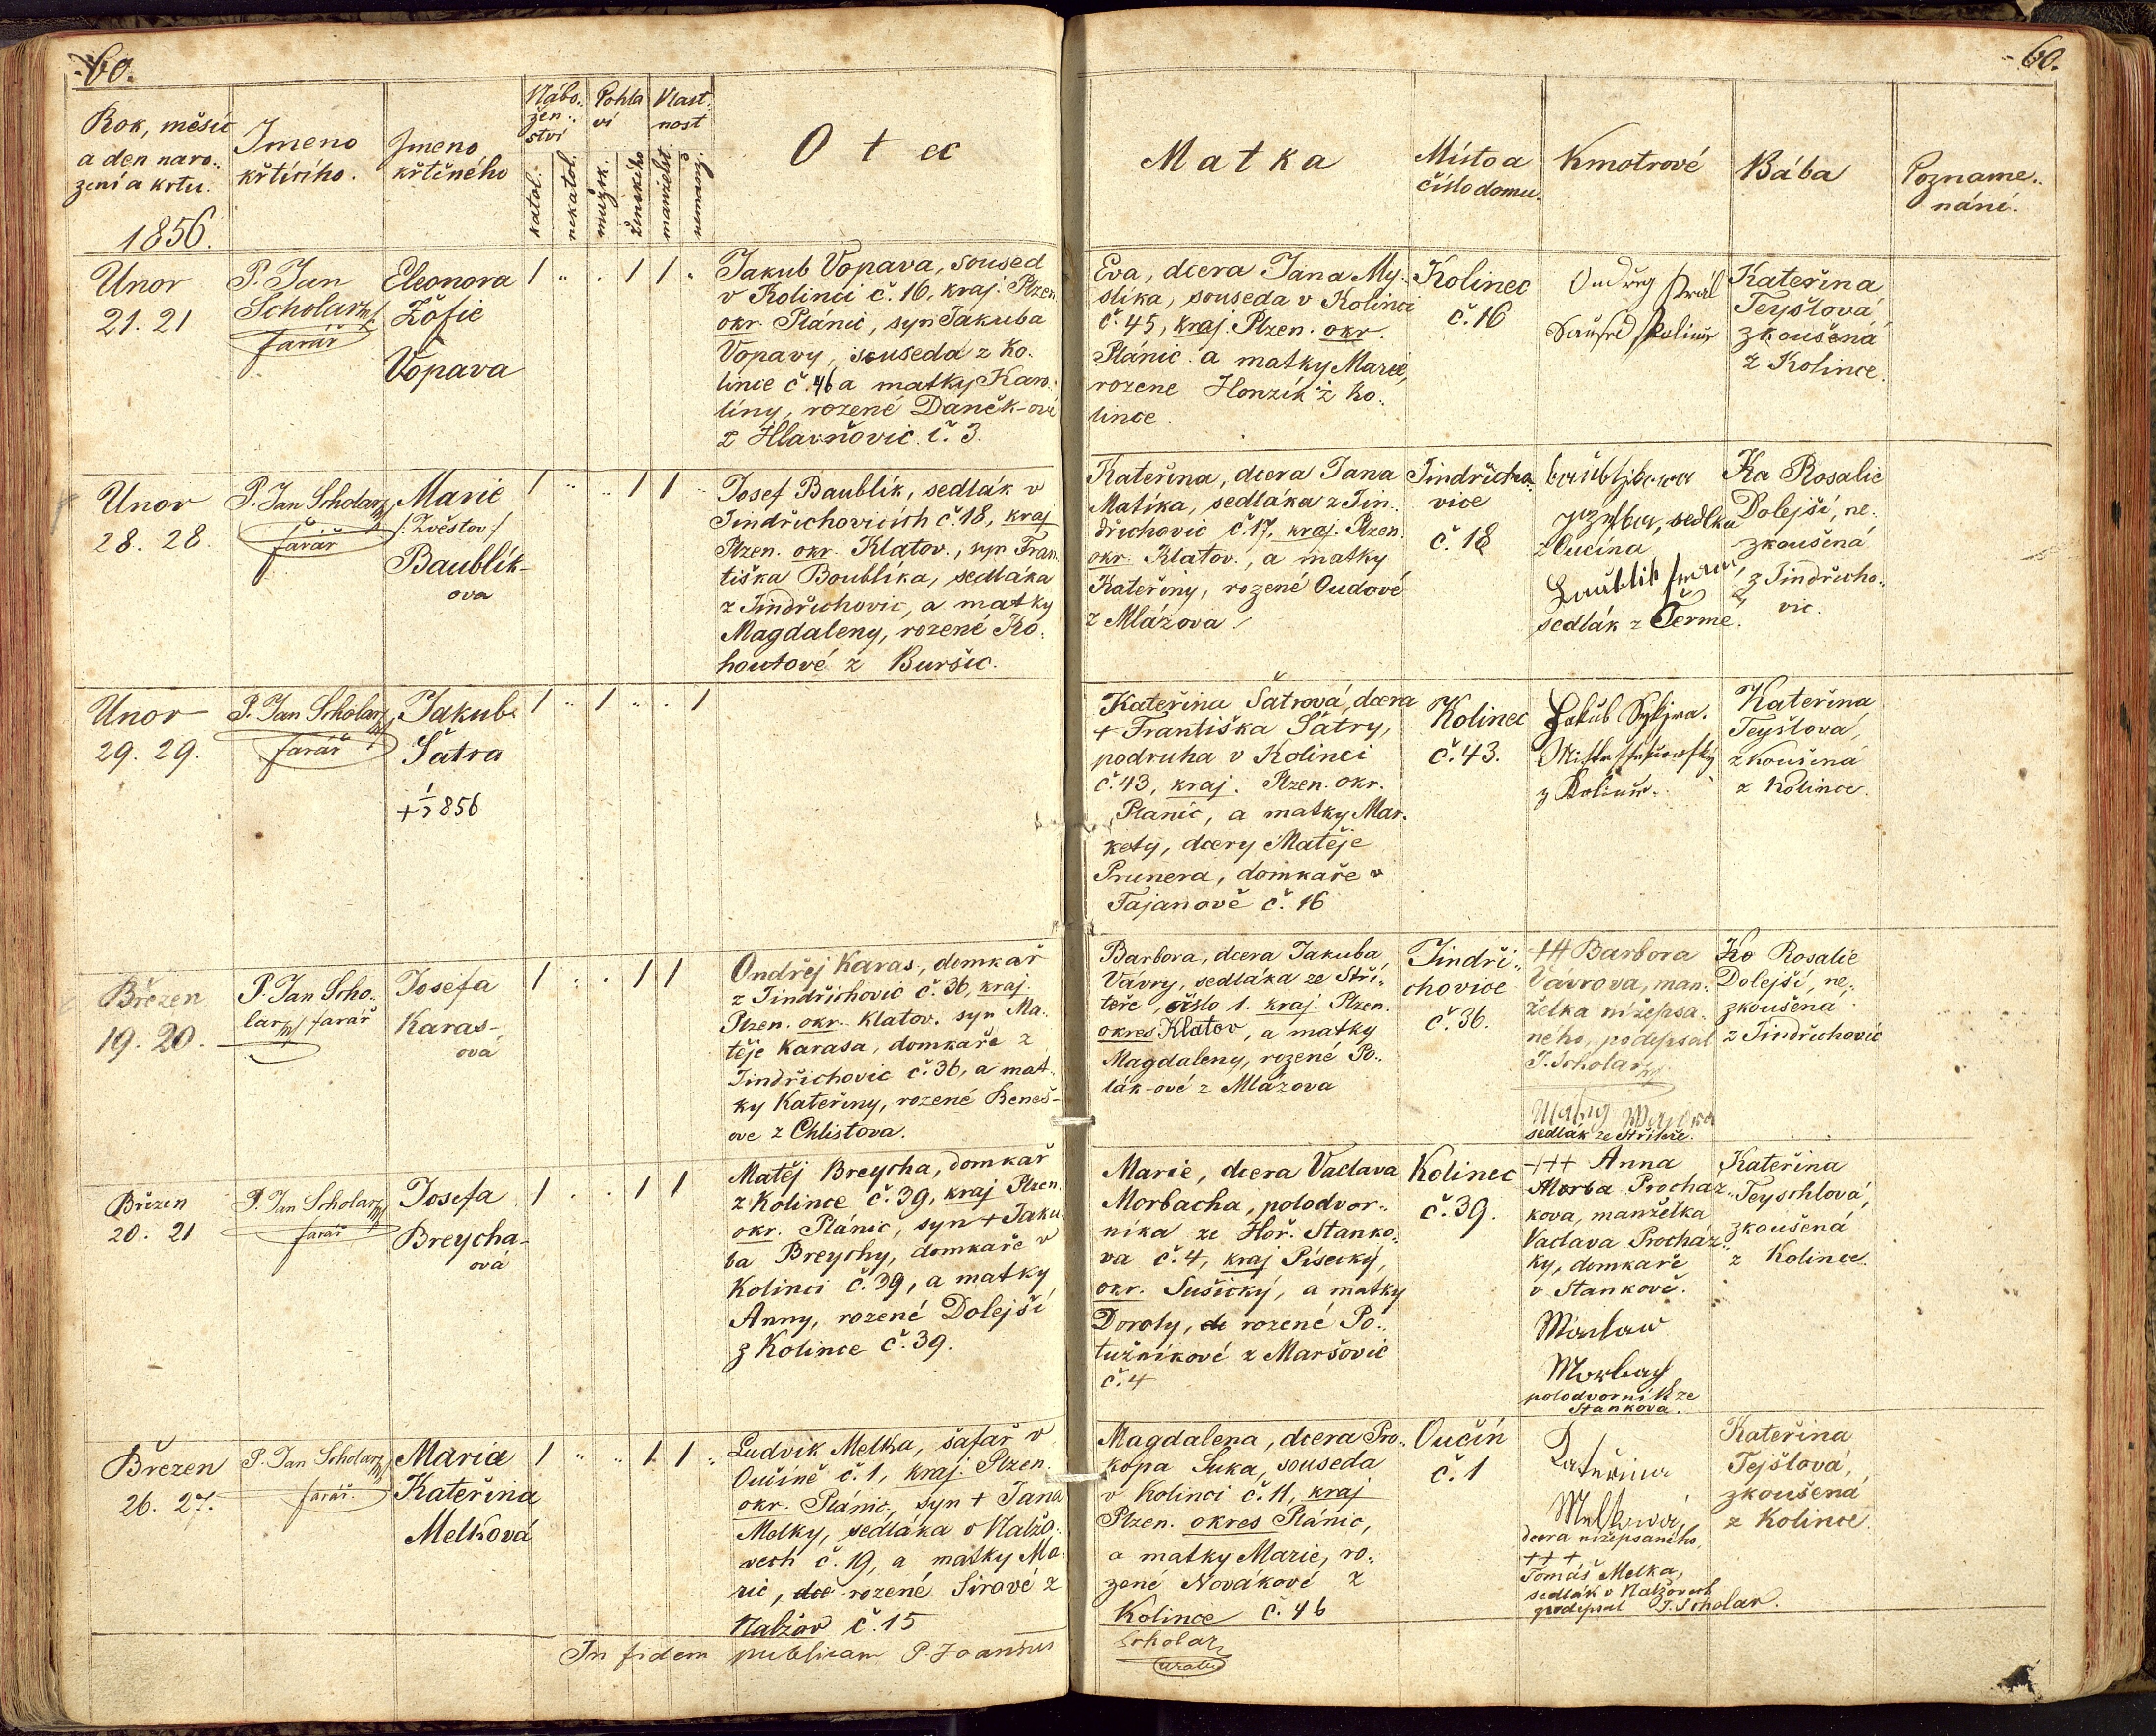 60.
60.
Rok, měsíc
a den naro..
zení a krtu.
1856.
Jmeno
křtícího.
Jmeno
křtěného
Nábo..
žen..
ství
katol.
nekatol.
Pohla
ví
mužsk.
ženského
Vlast.
nost
manželst.
nemanž.
Otec
Matka
Místo a
číslo domu.
Kmotrové
Bába
Pozname..
nání.
Unor
21. 21
P. Jan
Scholarz
farář
Eleonora
Žofie
Vopava
1 " . 1 1 "
Jakub Vopava, soused
v Kolinci č. 16, kraj. Plzen
okr. Plánic, syn Jakuba
Vopavy, souseda z Ko.
lince č. 46 a matky Karo.
líny, rozené Daněk-ové
z Hlavňovic č. 3.
Eva, dcera Jana My.
slíka, souseda v Kolinci
č. 45, kraj. Plzen. okr.
Plánic a matky Marie,
rozene Honzík z Ko..
lince.
Kolinec
č. 16
Ondřeg Král
Saused Kolinec
Kateřina
Teyšlová
zkoušená
z Kolince.
Unor
28. 28.
P. Jan Scholarz
farář
Marie
/: Zvěstov :/
Baublík-
ova
1 " " 1 1 "
Josef Baublík, sedlák v
Jindřichovicích č. 18, kraj
Plzen. okr. Klatov., syn Fran.
tiška Boublíka, sedláka
z Jindřichovic, a matky
Magdaleny, rozené Ko.
houtové z Buršic.
Kateřina, dcera Jana
Matíka, sedláka z Jin..
dřichovic č. 17, kraj. Plzen.
okr. Klatov., a matky
Kateřiny, rozené Oudové
z Mlázova
Jindřicho.
vice
č. 18
sedlka
z Oucína
Baublik
sedlák z Černé.
Ka Rosalie
Dolejší, ne..
zkoušená
z Jindřicho..
vic.
Unor
29. 29.
P. Jan Scholarz
farář
Jakub
Šatra
+ 1/7 856
1 " 1 " . 1
Kateřina Šatrová, dcera
+ Františka Šatry,
podruha v Kolinci
č. 43, kraj. Plzen. okr.
Planic, a matky Mar.
kety, dcery Matěje
Prunera, domkaře v
Tajanově č. 16
Kolinec
č. 43.
Jakub Sykjra.
z Kolince.
Kateřina
Teyšlová,
zkoušená
z Kolince.
Březen
19. 20.
P. Jan Scho..
larz farář
Josefa
Karas-
ová
1 . . 1 1
Ondřej Karas, domkář
z Jindřichovic č. 36, kraj.
Plzen. okr. Klatov. syn Ma..
těje Karasa, domkaře z
Jindřichovic č. 36, a mat..
ky Kateřiny, rozené Beneš-
ove z Chlistova.
Barbora, dcera Jakuba
Vávry, sedláka ze Stří..
teře, číslo 1. kraj. Plzen.
okres Klatov, a matky
Magdaleny, rozené Po..
lák-ové z Mlázova
Jindři..
chovice
č. 36.
+++ Barbora
Vávrova, man..
želka nížepsa.
ného, podepsal
J. Scholarz
sedlák ze Střiteře.
Ko Rosalie
Dolejší, ne..
zkoušená
z Jindřichovic
Březen
20. 21
P. Jan Scholarz
farář
Josefa
Breycha-
ová
1 . . 1 1
Matěj Breycha, domkář
z Kolince č. 39, kraj Plzen.
okr. Plánic, syn + Jaku.
ba Breychy, domkaře v
Kolinci č. 39, a matky
Anny, rozené Dolejší
z Kolince č. 39.
Marie, dcera Vaclava
Morbacha, polodvor..
níka ze Hoř. Stanko..
va č. 4, kraj Písecký,
okr. Sušický, a matky
Doroty, de rozené Po..
tužníkové z Maršovic
č. 4
Kolinec
č. 39.
+++ Anna
Morba Procház..
kova, manželka
Vaclava Procház..
ky, domkaře
v Stankově.
Waclaw
Morbach
polodvorník ze
Stankova.
Kateřina
Teyschlová,
zkoušená
z Kolince.
Březen
26. 27.
P. Jan Scholarz
farář.
Marie
Kateřina
Melková
1 " " 1 1 "
Ludvik Melka, šafář v
Oučíně č. 1, kraj. Plzen.
okr. Plánic, syn + Jana
Melky, sedláka v Nalžo..
vech č. 19, a matky Ma.
rie, dce rozené Siravé z
Nalžov č. 15
Magdalena, dcera Pro..
kopa Suka, souseda
v Kolinci č. 11, kraj
Plzen. okres Plánic,
a matky Marie, ro..
zené Novákové z
Kolince č. 46
Oučín
č. 1
Kateřina
Melková,
dcera nížepsaného,
+++
Tomáš Melka,
sedlák v Nalžovech
podepsal J. Scholar.
Kateřina
Tejšlová,
zkoušená
z Kolince.
In fidem publicam P. Joannes
Scholarz